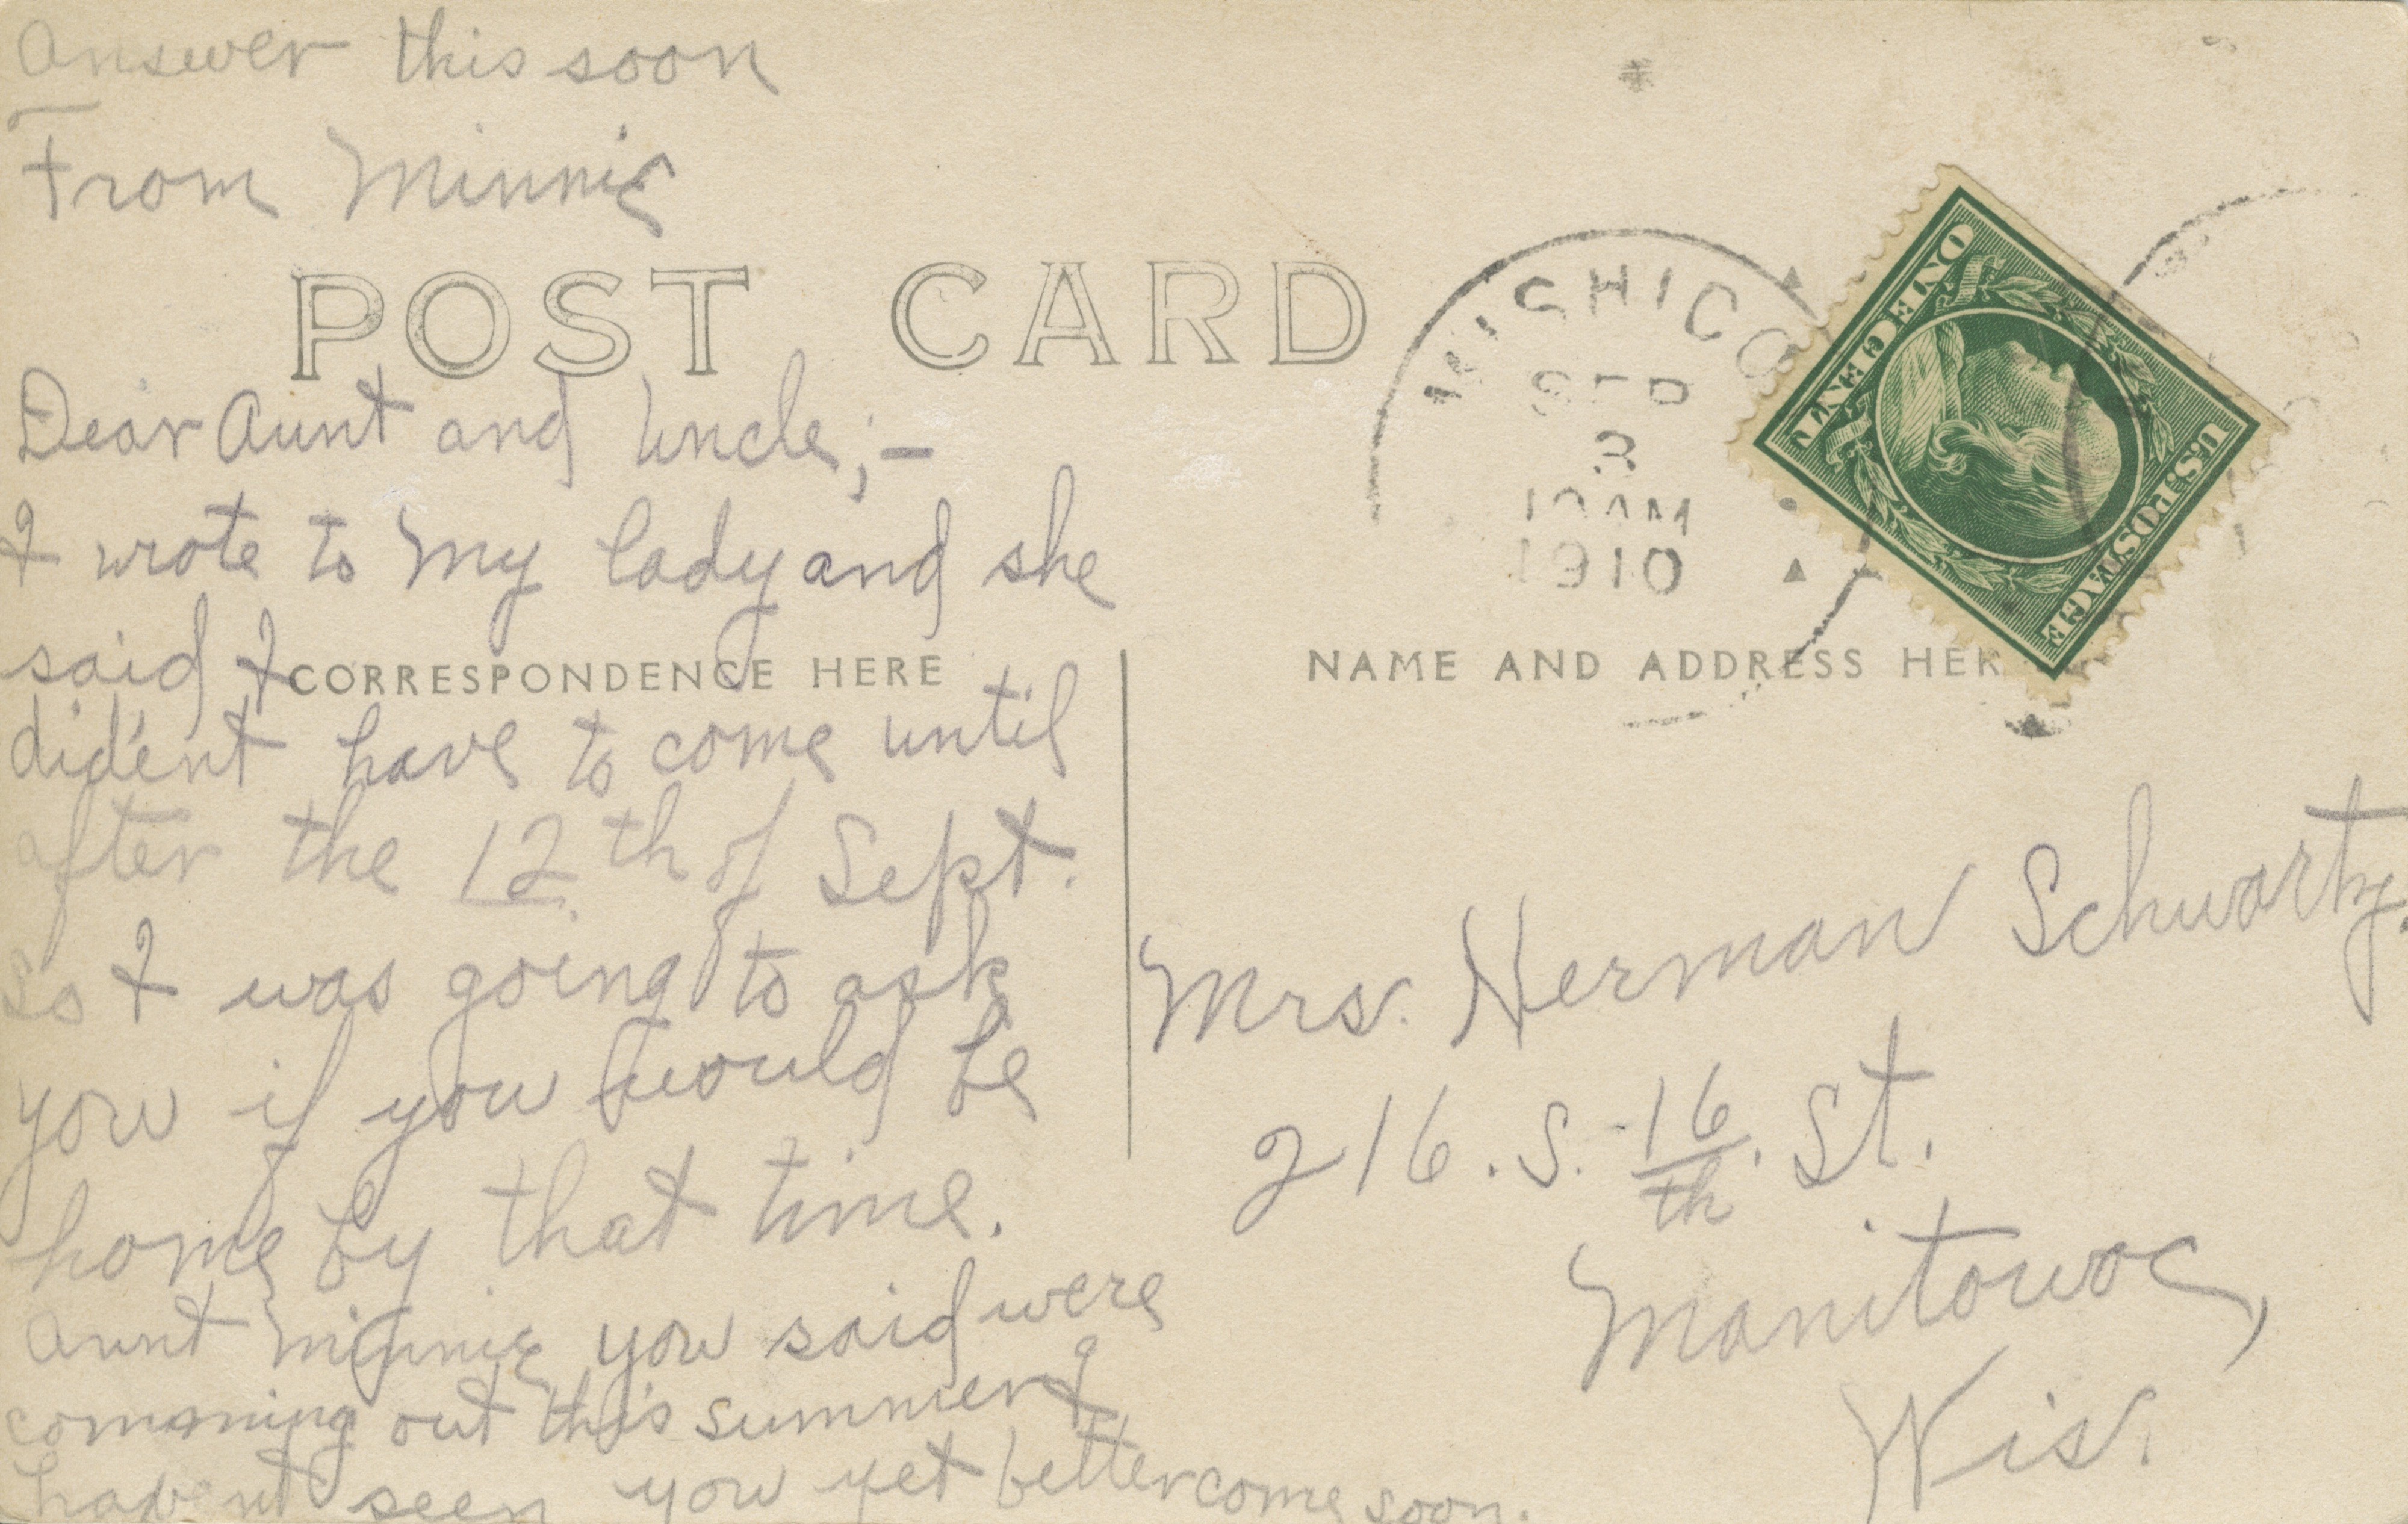 Answer this soon
From Minnie
POST CARD
Dear Aunt and Uncle;-
I wrote to my lady and she
said I
CORRESPONDENCE HERE
did'ent have to come until
after the 12th of Sept.
So I was going to ask
you if you would be
home by that time.
Aunt Minnie you said were
comming out this summer I
havent seen you yet better come soon.
MISHICO
SEP
3
10 AM
1910
U.S. POSTAGE
ONE CENT ONE
NAME AND ADDRESS HER
Mrs. Herman Schwartz.
216. S. 16th. St.
Manitowoc,
Wis.